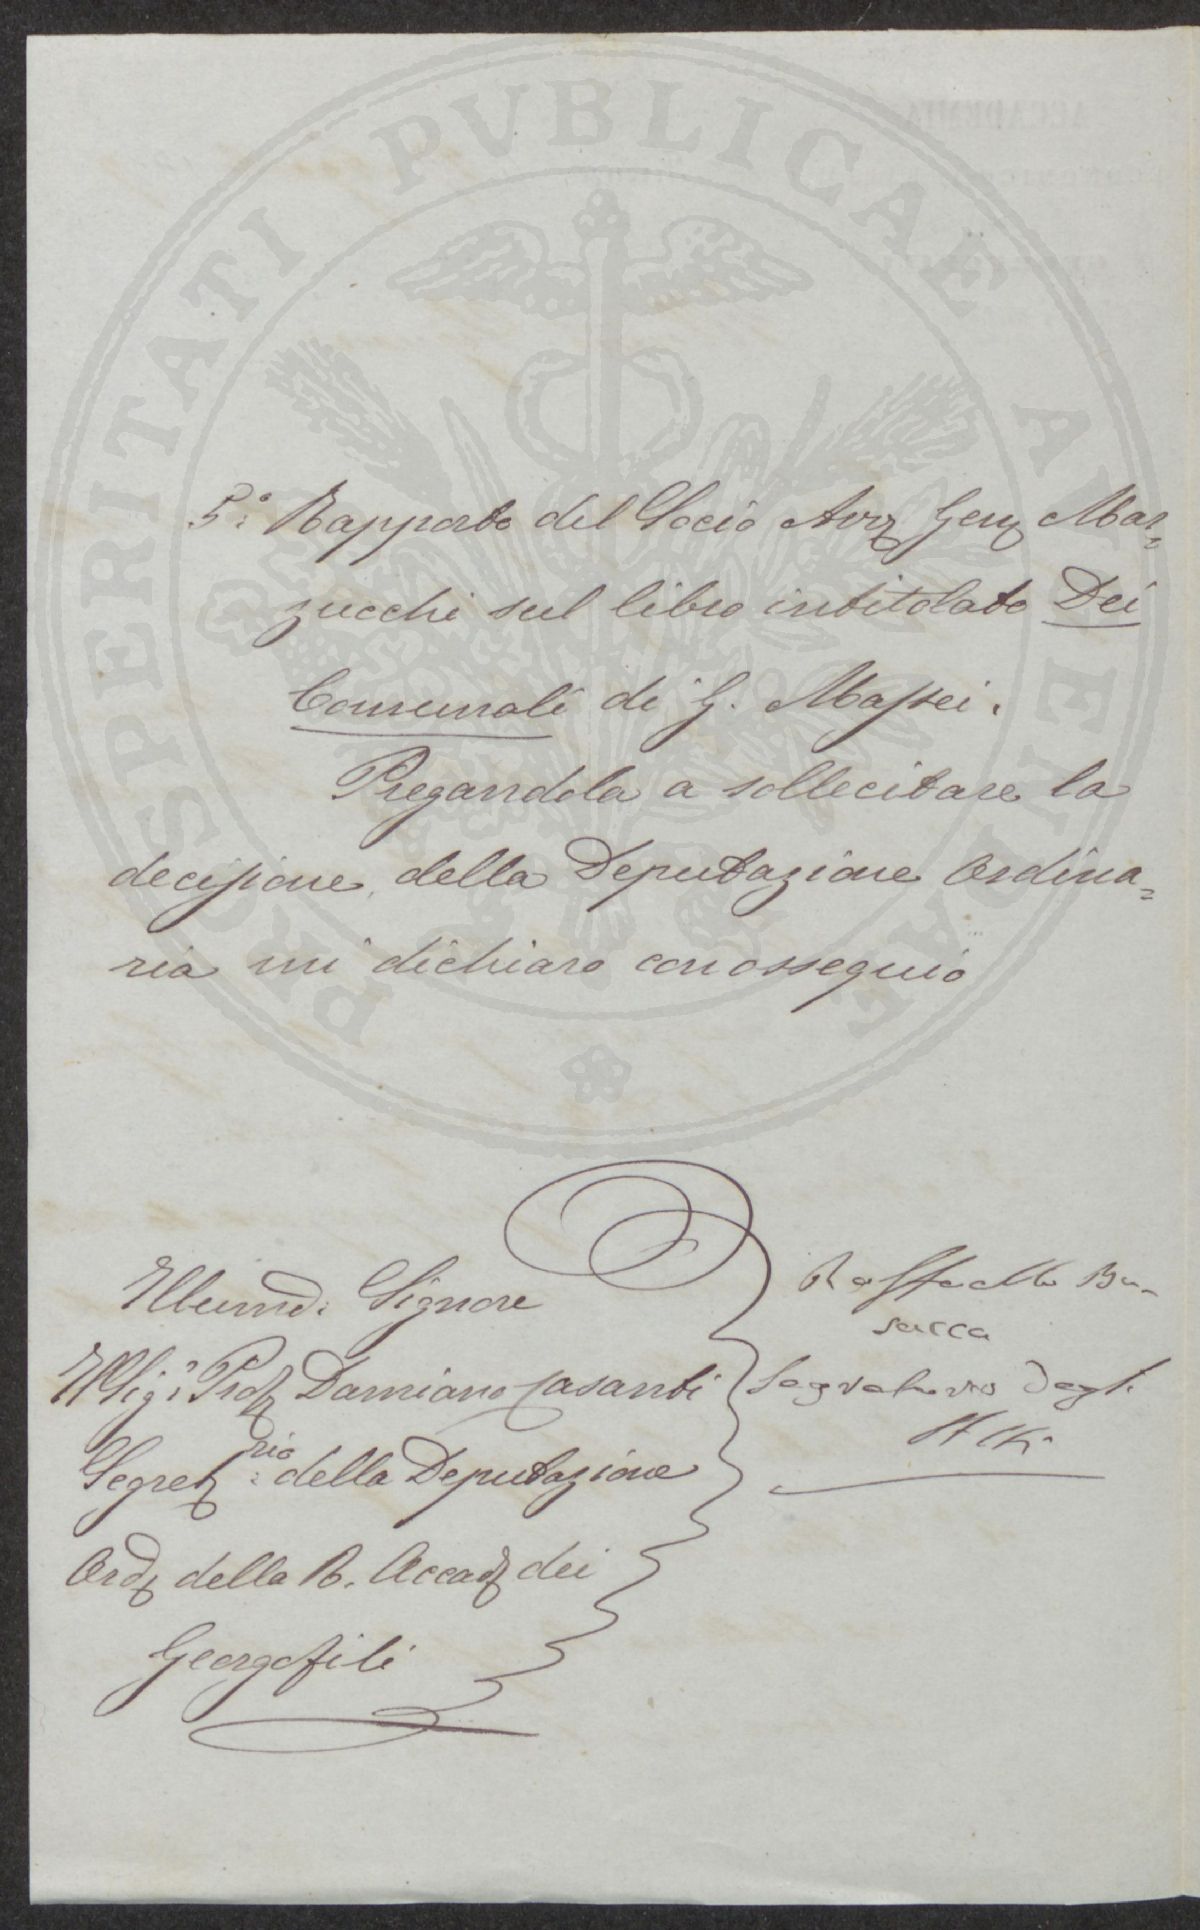 PROSPERITATI PUBLICAE AVGENDAE
5.° Rapporto del Socio Avv Gen Mar=
zucchi sul libro intitolato Dei
Comunali di G. Massei.
Pregandola a sollecitare la
decisione della Deputazione Ordina=
ria mi dichiaro con ossequio
Illumo: Signore
Il Sig.r Prof Damiano Casanti
Segret:rio della Deputazione
Ord della R. Accad dei
Georgofili
Raffaello Bu-
sacca
Segretario degli
Atti